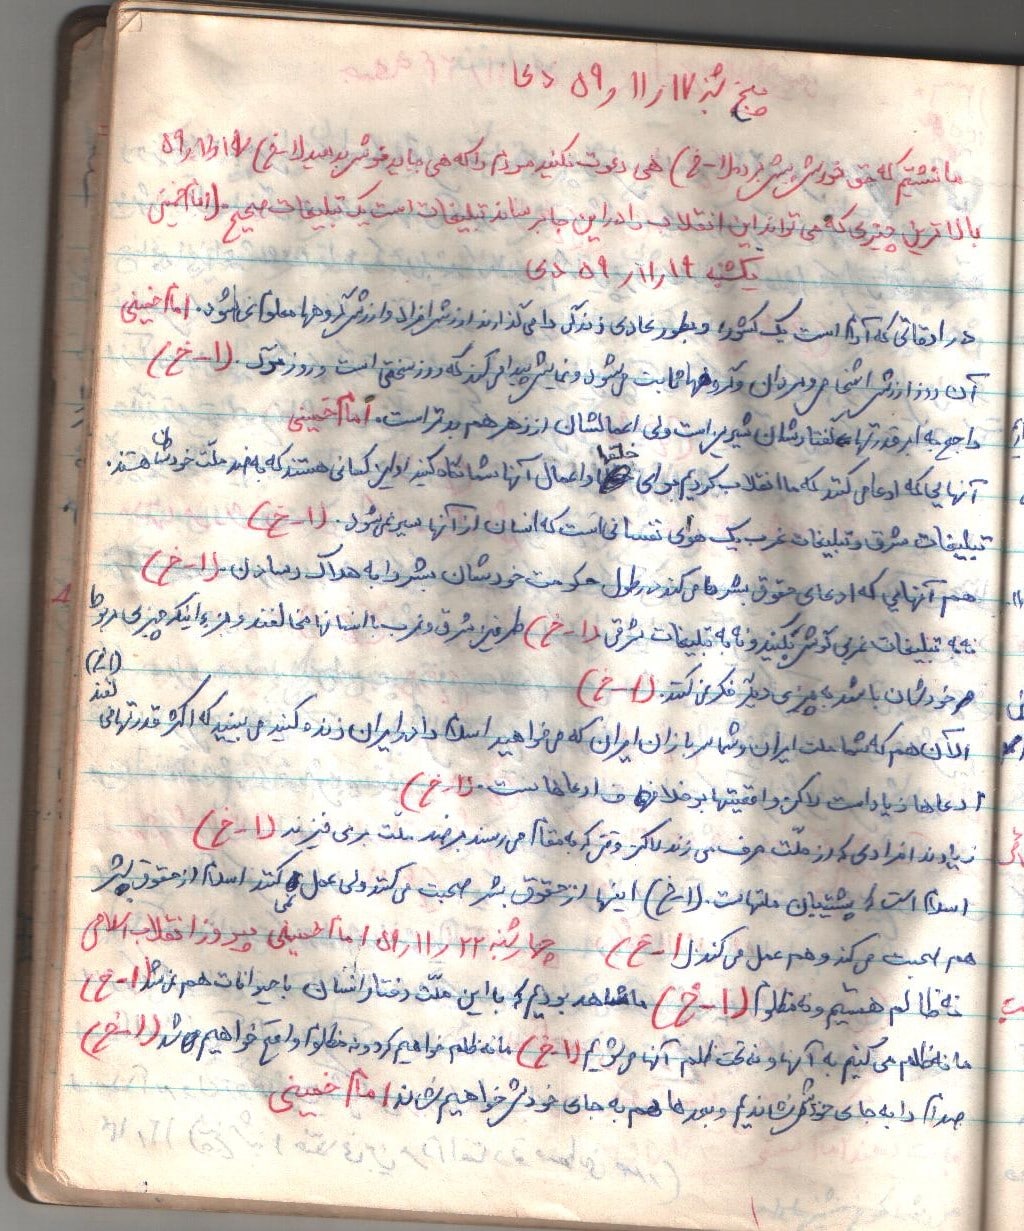 صبح شنبه ۱۷ ر ۱۱ ر ۵۹ دی
ما نشستیم که حق خودش پیش ببرد (ا-خ) هی دعوت نکنید مردم را که هی بیاید خودش بدهید (ا-خ) ۱۹ ر ۱۱ ر ۵۹
بالاترین چیزی که می تواند این انقلاب را در این جا برساند تبلیغات است یک تبلیغات صحیح. (امام خمینی
یکشنبه ۱۹ ر ۱۱ ر ۵۹ دی
در اوقاتی که آرام است یک کشور، و بطور عادی زندگی را می گذارند ارزش افراد و ارزش گروهها معلوم نمی شود. امام خمینی
آن روز ارزش اشخاص و مردان و گروهها ثابت می شود و نمایش پیدا می کند که روز سختی است و روز مرگ. (ا-خ)
راجع به ابر قدرتها، گفتارشان شیرین است ولی اعمالشان از زهر هم بدتر است. امام خمینی
آنهایی که ادعا می کنند که ما انقلاب کردیم برای خلقها و اعمال آنها شما نگاه کنید اولین کسانی هستند که به ضد ملت خودشان هستند.
تبلیغات شرق و تبلیغات غرب یک هوای نفسانی است که انسان از آنها سیر نمی شود. (ا-خ)
هم آنهایی که ادعای حقوق بشر ما می کنند در طول حکومت خودشان بشر را به هلاک رساندن. (ا-خ)
نه به تبلیغات غربی گوش بکنید و نه به تبلیغات شرقی (ا-خ) طرفین شرق و غرب با انسانها مخالفند و جزء اینکه چیزی مربوط
به خودشان باشد به چیزی دیگر فکر نمی کنند. (ا-خ)
الآن هم که شما ملت ایران و شما سربازان ایران که می خواهید اسلام را در ایران زنده کنید می بینید که اکثر قدرتها مخالفند
ادعاها زیاد است لاکن واقعیتها بر خلاف ادعاهاست. (ا-خ)
زیادند افرادی که از ملت حرف می زنند لاکن وقتی که به مقام می رسند بر ضد ملت برمی خیزند (ا-خ)
اسلام است که پشتیبان ملتهاست. (ا-خ) اینها از حقوق بشر صحبت می کنند ولی عمل نمی کنند اسلام از حقوق بشر
هم صحبت می کند و هم عمل می کند (ا-خ) چهارشنبه ۲۲ ر ۱۱ ر ۵۹ امام خمینی پیروز انقلاب اسلامی
نه ظالم هستیم و نه مظلوم (ا-خ) ما شاهد بودیم که با این ملت رفتار انسان با حیوانات هم نمی شد (ا-خ)
ما نه ظلم می کنیم به آنها و نه تحت ظلم آنها می رویم (ا-خ) ما نه ظلم خواهیم کرد و نه مظلوم واقع خواهیم شد (ا-خ)
صدام را به جای خودش نشاندیم و بعدها هم به جای خودش خواهیم نشاند امام خمینی